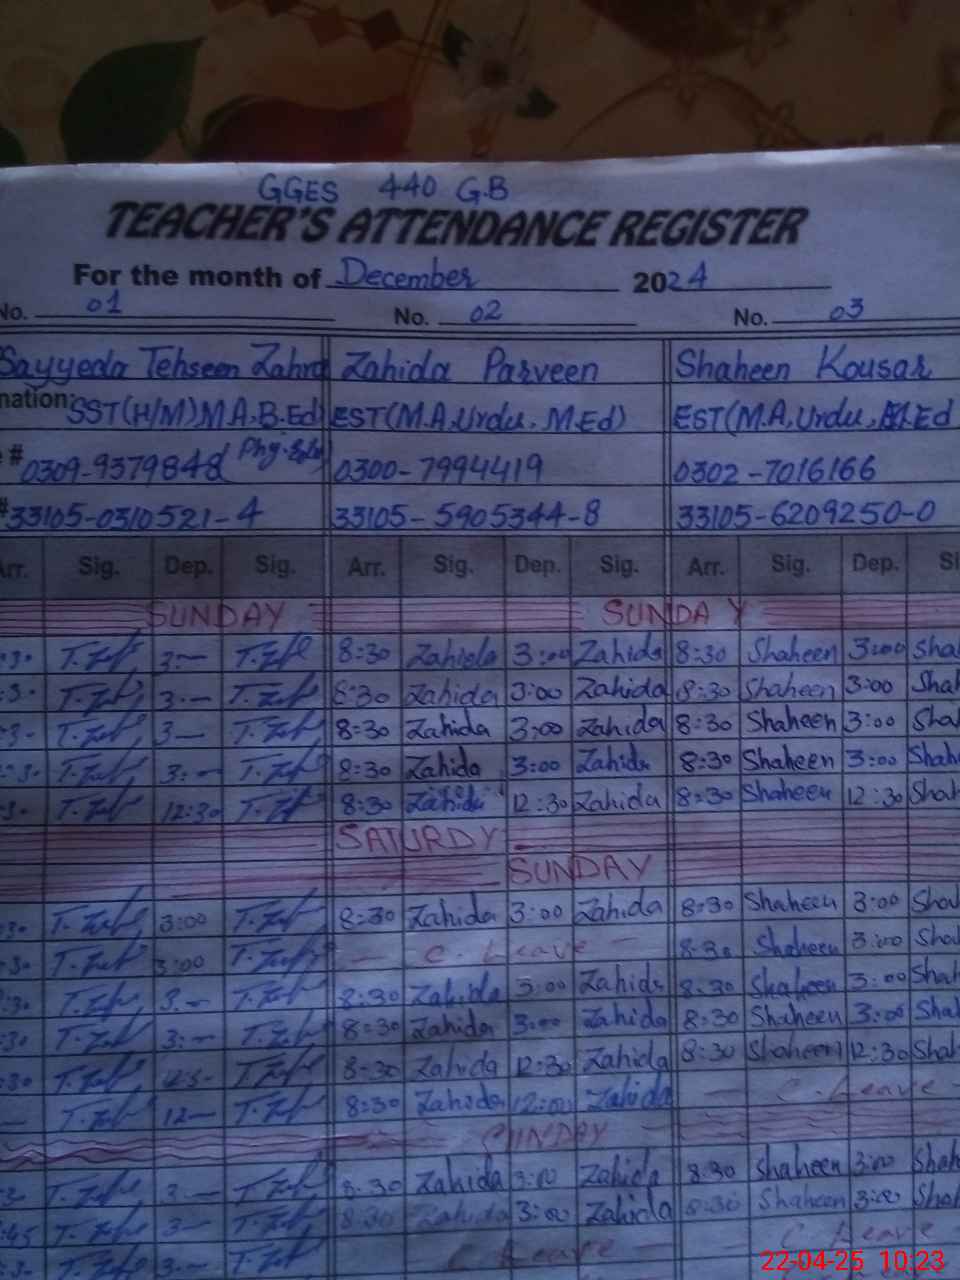 GGES 440 G.B
TEACHER'S ATTENDANCE REGISTER
For the month of December 2024
No. 01 No. 02 No. 03
Sayyeda Tehseen Zahra Zahida Parveen Shaheen Kousar
nation: SST(H/M) M.A.B.Ed) EST(M.A.Urdu. M.Ed) EST(M.A,Urdu,
# 0309-9379848 0300-7994419 0302-7016166
# 33105-0310521-4 33105-5905344-8 33105-6209250-0
Arr. Sig. Dep. Sig. Arr. Sig. Dep. Sig. Arr. Sig. Dep. Si
SUNDAY SUNDAY
3:— 8:30 Zahida 3:00 Zahida 8:30 Shaheen 3:00 Sha
3:— 8:30 Zahida 3:00 Zahida 8:30 Shaheen 3:00 Sha
3— 8:30 Zahida 3:00 Zahida 8:30 Shaheen 3:00 Sha
3:— 8:30 Zahida 3:00 Zahida 8:30 Shaheen 3:00 Shah
12:30 8:30 Zahida 12:30 Zahida 8:30 Shaheen 12:30 Shah
SATURDY
SUNDAY
3:00 8:30 Zahida 3:00 Zahida 8:30 Shaheen 3:00 Sha
3:00 — C. Leave — 8:30 Shaheen 3:00 Sha
3— 8:30 Zahida 3:00 Zahida 8:30 Shaheen 3:00 Shah
3:— 8:30 Zahida 3:00 Zahida 8:30 Shaheen 3:00 Sha
8:30 Zahida 12:30 Zahida 8:30 Shaheen 12:30 Shah
12— 8:30 Zahida 12:00 Zahida — C. Leave —
SUNDAY
3— 8:30 Zahida 3:00 Zahida 8:30 Shaheen 3:00 Shah
3— 8:30 Zahida 3:00 Zahida 8:30 Shaheen 3:00 Sha
3— Leave — C. Leave
22-04-25 10:23